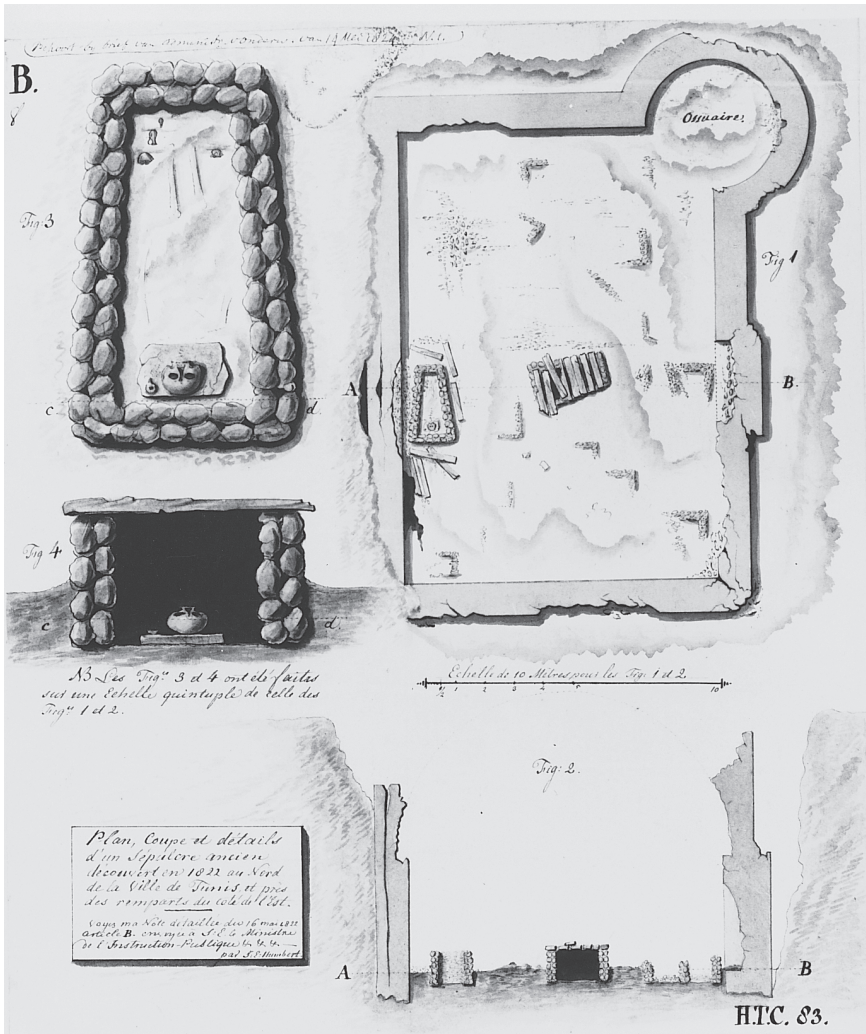 B.
8
Fig: 3
c
d
Fig 4
c
d.
NB Les Figes 3 et 4 ont été faites
sur une Echelle quintuple de celle des
Figes 1 et 2.
Ossuaire.
Fig 1
A
B.
Echelle de 10 Mètres pour les Fig: 1 et 2.
1 2 3 4 5 10
Fig: 2.
Plan, Coupe et détails
d'un Sépulcre ancien
découvert en 1822 au Nord
de la Ville de Tunis, et près
des remparts du coté de l'Est.
Voyez ma Note détaillée du 16 mai 1822
article B. envoyée à S. E. le Ministre
de l'Instruction-Publique &. &. &.
par J. E. Humbert.
A
B
H.T.C. 83.